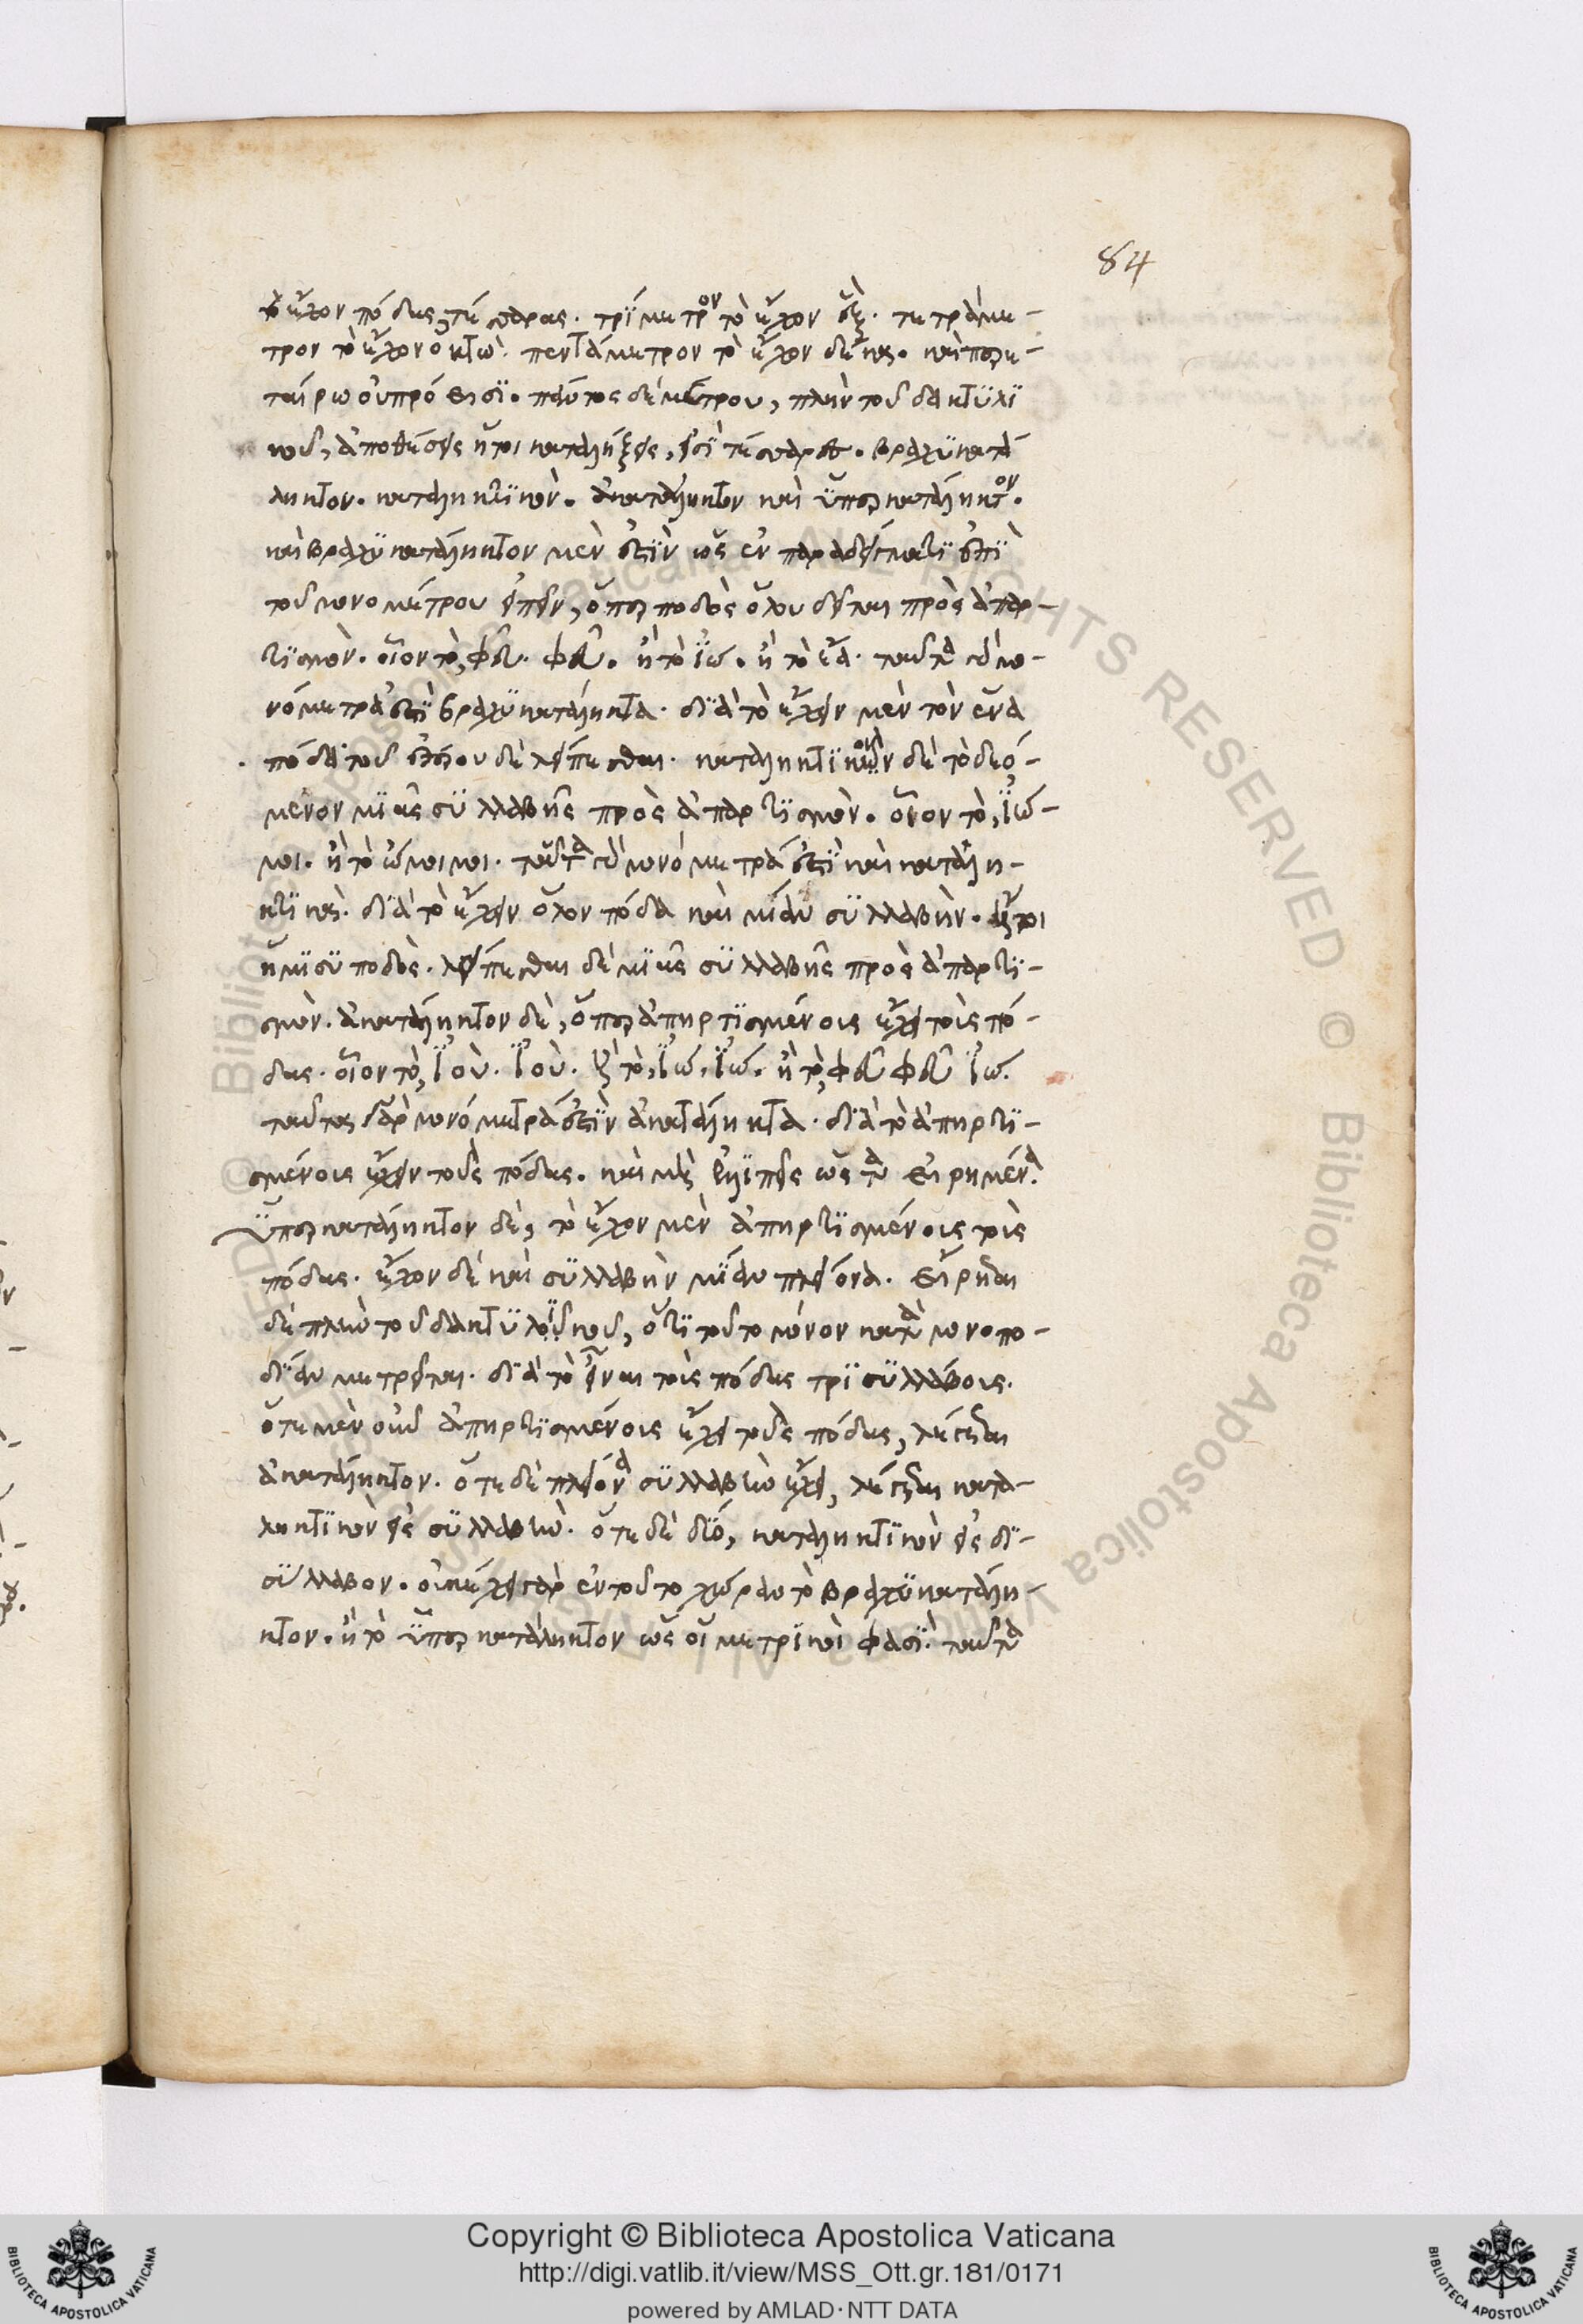 84
τὸ ἔχον πόδας τέσσαρας. τρίμετρον τὸ ἔχον ἕξ. τετράμε-
τρον τὸ ἔχον ὀκτώ. πεντάμετρον τὸ ἔχον δέκα. καὶ περαι-
τέρω οὐ πρόεισι. παντὸς δὲ μέτρου, πλὴν τοῦ δακτυλι
κοῦ, ἀποθέσεις ἤτοι καταλήξεις, εἰσὶ τέσσαρες. βραχυκατά
ληκτον. καταληκτικόν. ἀκατάληκτον καὶ ὑπερκατάληκτον.
καὶ βραχυκατάληκτον μέν ἐστιν ὡς ἐν παραδείγματι ἐπὶ
τοῦ μονομέτρου εἰπεῖν, ὅπερ ποδὸς ὅλου δεῖται πρὸς ἀπαρ-
τισμόν. οἷον τὸ, φεῦ. φεῦ. ἢ τὸ ἰώ. ἢ τὸ ἔα. ταῦτα γὰρ μο-
νόμετρά ἐστι βραχυκατάληκτα. διὰ τὸ ἔχειν μὲν τὸν ἕνα
πόδα· τοῦ ἑτέρου δὲ λείπεσθαι. καταληκτικὸν δὲ τὸ δεό-
μενον μιᾶς συλλαβῆς πρὸς ἀπαρτισμόν. οἷον τὸ, ἰώ-
μοι. ἢ τὸ ὤμοι μοι. ταῦτα γὰρ μονόμετρά ἐστι καὶ καταλη-
κτικά. διὰ τὸ ἔχειν ὅλον πόδα καὶ μίαν συλλαβήν. ἤτοι
ἥμισυ ποδός. λείπεσθαι δὲ μιᾶς συλλαβῆς πρὸς ἀπαρτι-
σμόν. ἀκατάληκτον δὲ, ὅπερ ἀπηρτισμένους ἔχει τοὺς πό-
δας. οἷον τὸ, ἰού. ἰού. καὶ τὸ, ἰώ. ἰώ. ἢ τὸ, φεῦ φεῦ ἰώ.
ταῦτα γὰρ μονόμετρά ἐστιν ἀκατάληκτα. διὰ τὸ ἀπηρτι-
σμένους ἔχειν τοὺς πόδας. καὶ μὴ ἐλλιπεῖς ὡς τὰ εἰρημένα.
ὑπερκατάληκτον δὲ, τὸ ἔχον μὲν ἀπηρτισμένους τοὺς
πόδας. ἔχον δὲ καὶ συλλαβὴν μίαν πλείονα. εἴρηται
δὲ πλὴν τοῦ δακτυλικοῦ, ὅτι τοῦτο μόνον κατὰ μονοπο-
δίαν μετρεῖται. διὰ τὸ εἶναι τοὺς πόδας τρισυλλάβους.
ὅτε μὲν οὖν ἀπηρτισμένους ἔχει τοὺς πόδας, λέγεται
ἀκατάληκτον. ὅτε δὲ πλείονα συλλαβὴν ἔχει, λέγεται κατα-
ληκτικὸν εἰς συλλαβήν. ὅτε δὲ δύο, καταληκτικὸν εἰς δι-
σύλλαβον. οὐκ ἔχει γὰρ ἐν τούτῳ χώραν τὸ βραχυκατάλη-
κτον. ἢ τὸ ὑπερκατάληκτον ὡς οἱ μετρικοὶ φασί. ταῦτα
Copyright © Biblioteca Apostolica Vaticana
http://digi.vatlib.it/view/MSS_Ott.gr.181/0171
powered by AMLAD·NTT DATA